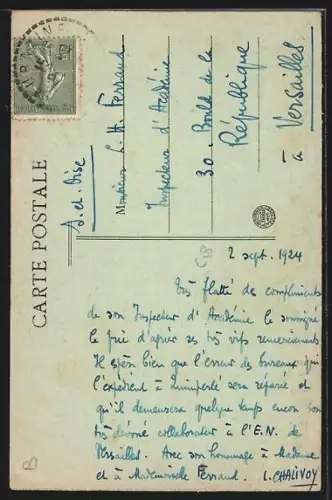 CARTE POSTALE
Monsieur L. H. Ferrand
Inspecteur d'Académie
30. Boulev. de la
République
à Versailles
S.-et-Oise
2 sept. 1924
Très flatté des compliments
de son Inspecteur d'Académie le soussigné
le prie d'agréer ses très vifs remerciements
Il espère bien que l'erreur des bureaux qui
l'expédient à Quimperlé sera réparée et
qu'il demeurera quelque temps encore son
très dévoué collaborateur à l'E.N. de
Versailles. Avec son hommage à Madame
et à Mademoiselle Ferrand. L. CHALIVOY